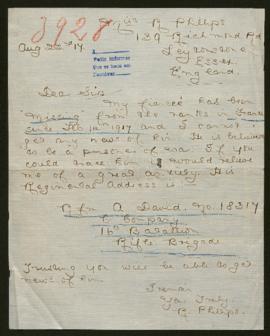 3928
Miss R Phillips
139 Richmond Rd
Leytonstone
Essex
England.
Aug 22nd 17.
Dea Sir
My fiancé has been
missing from the ranks in France
since Feb 10th 1917 and I cannot
get any news of him. It is believed
to be a prisoner of war. If you
could trace him it would relieve
me of a great anxiety. His
Regimental address is
Rfn A David, No. 18317
C Company
16th Battalion
Rifle Brigade
Trusting you will be able to get
news of him
I remain
Yrs Truly
R Phillips.